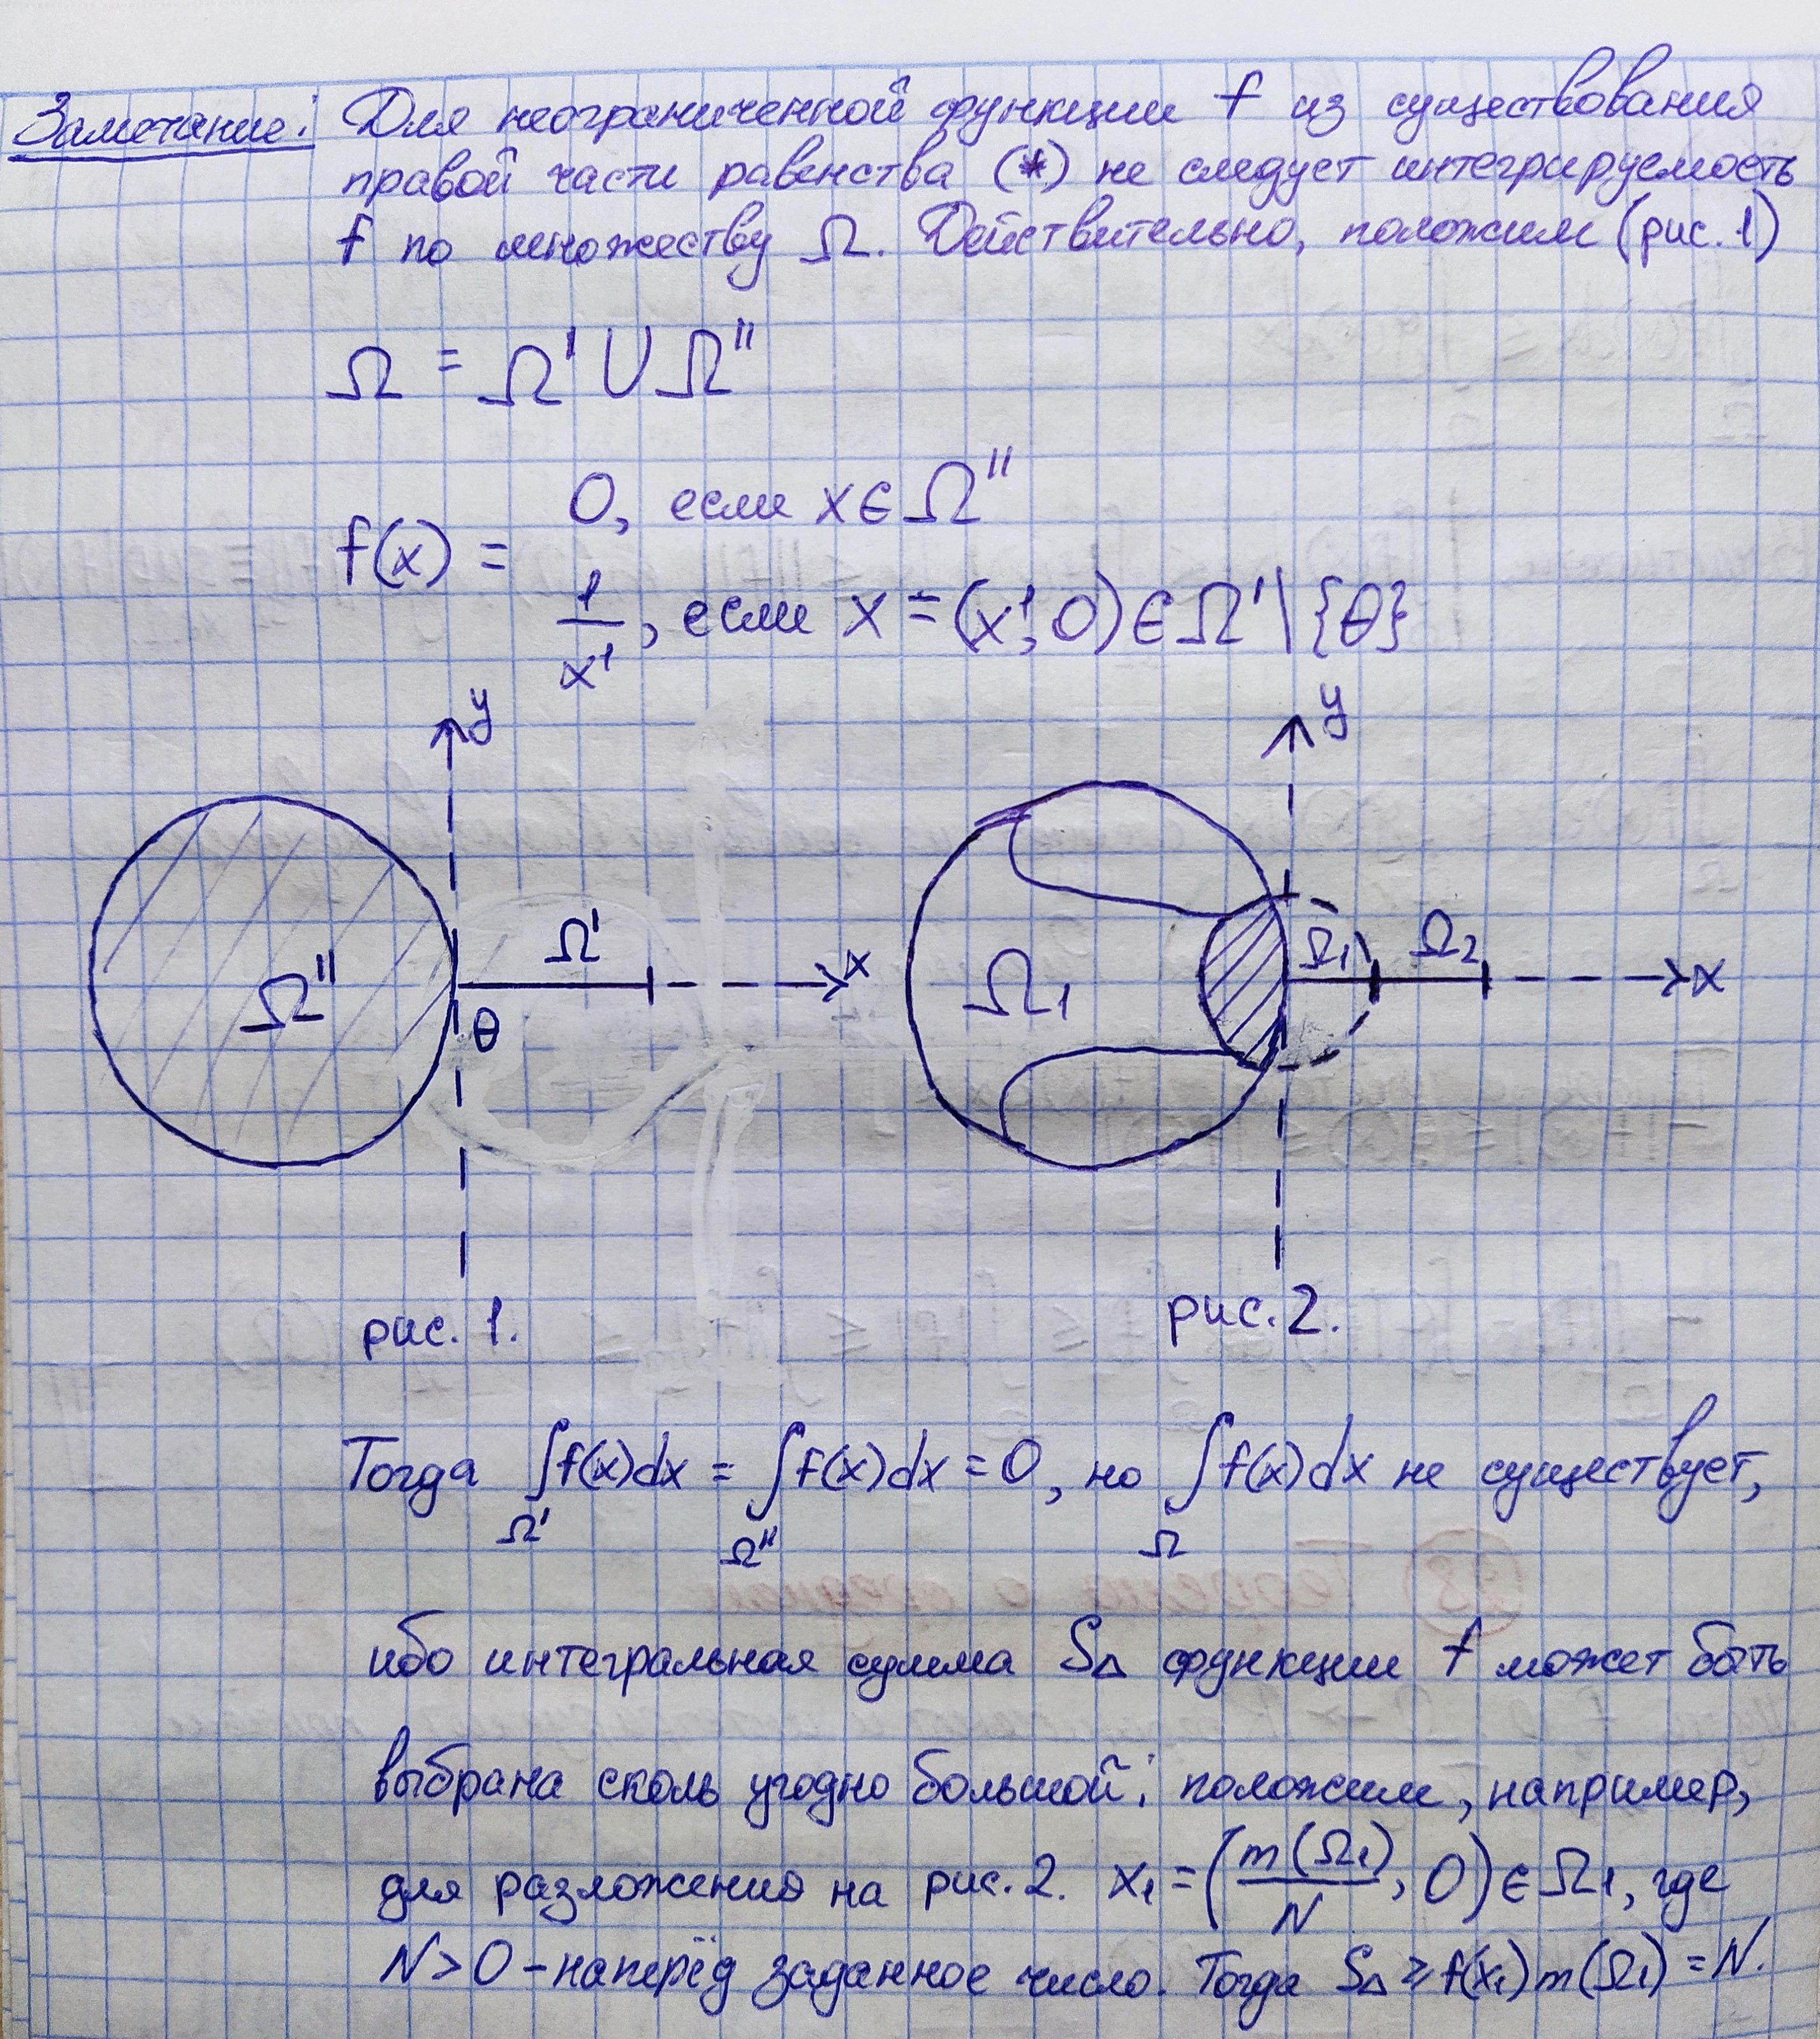 Замечание: Для неограниченной функции f из существования
правой части равенства (*) не следует интегрируемость
f по множеству Ω. Действительно, положим (рис. 1)
Ω = Ω' ∪ Ω''
f(x) =
0, если x ∈ Ω''
1/x¹, если x = (x¹; 0) ∈ Ω' \ {θ}
y
y
Ω''
Ω'
x
θ
Ω₁
Ω₁
Ω₂
x
рис. 1.
рис. 2.
Тогда ∫_Ω' f(x)dx = ∫_Ω'' f(x)dx = 0, но ∫_Ω f(x)dx не существует,
ибо интегральная сумма S_Δ функции f может быть
выбрана сколь угодно большой: положим, например,
для разложения на рис. 2. x₁ = (m(Ω₁)/N, 0) ∈ Ω₁, где
N > 0 – наперёд заданное число. Тогда S_Δ ≥ f(x₁)m(Ω₁) = N.